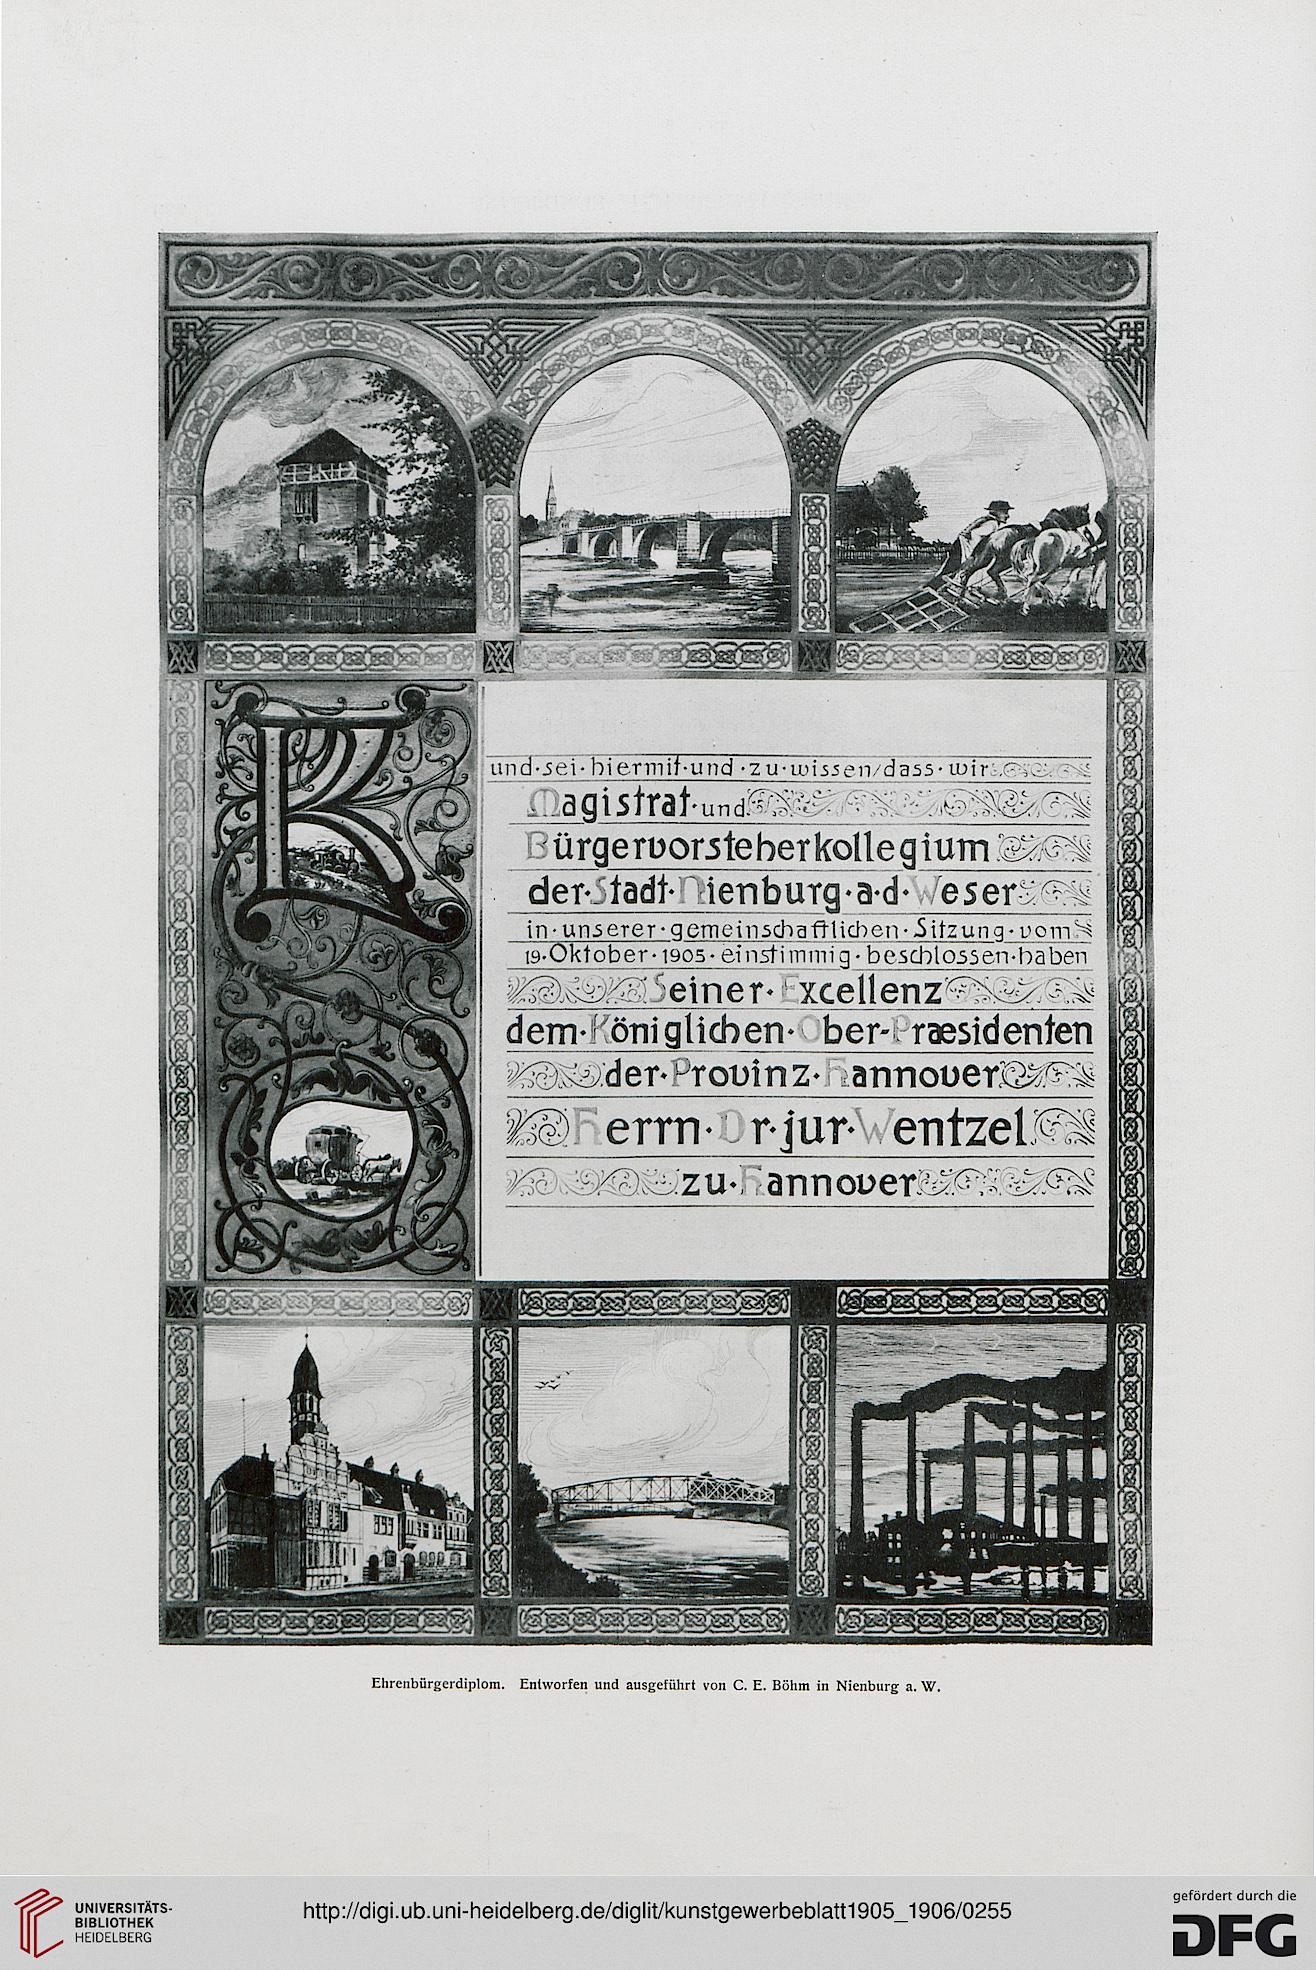 K
und·sei·hiermit·und·zu·wissen/dass·wir
Magistrat·und
Bürgervorsteherkollegium
der·Stadt·Nienburg·a·d·Weser
in·unserer·gemeinschaftlichen·Sitzung·vom
19·Oktober·1905·einstimmig·beschlossen·haben
Seiner·Excellenz
dem·Königlichen·Ober-Præsidenten
der·Provinz·Hannover
Herrn·Dr·jur·Wentzel
zu·Hannover
Ehrenbürgerdiplom. Entworfen und ausgeführt von C. E. Böhm in Nienburg a. W.
UNIVERSITÄTS-
BIBLIOTHEK
HEIDELBERG
http://digi.ub.uni-heidelberg.de/diglit/kunstgewerbeblatt1905_1906/0255
gefördert durch die
DFG